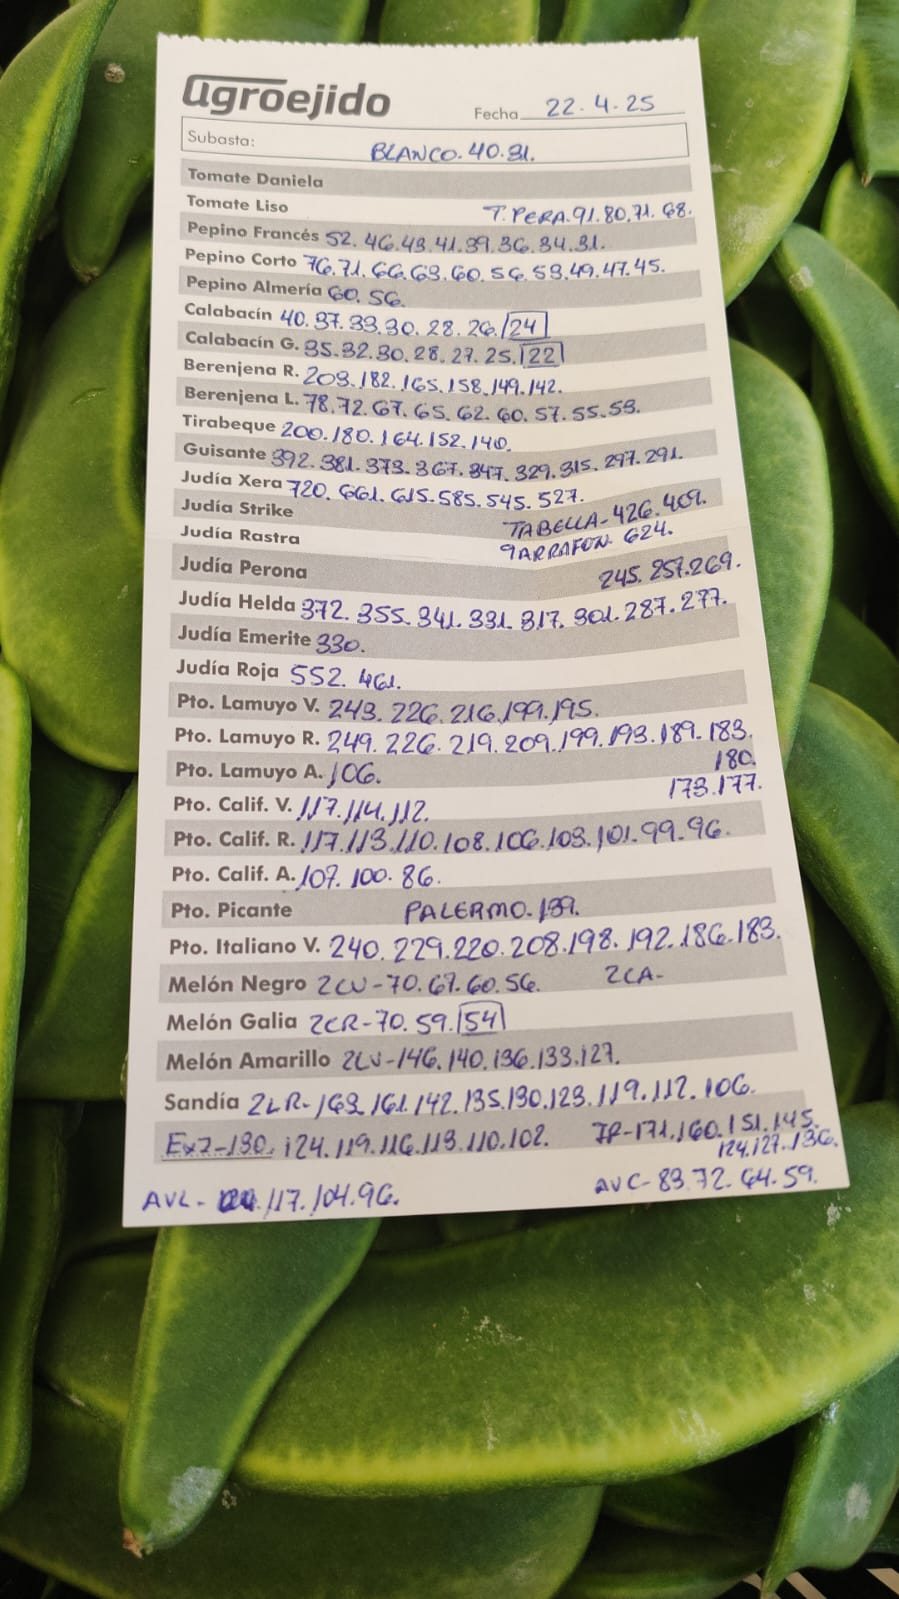 agroejido
Fecha 22.4.25
Subasta: BLANCO.40.31.
Tomate Daniela
Tomate Liso T.PERA.91.80.71.68.
Pepino Francés 52.46.43.41.39.36.34.31.
Pepino Corto 76.71.66.63.60.56.53.49.47.45.
Pepino Almería 60.56.
Calabacín 40.37.33.30.28.26.24
Calabacín G. 35.32.30.28.27.25.22
Berenjena R. 203.182.165.158.149.142.
Berenjena L. 78.72.67.65.62.60.57.55.53.
Tirabeque 200.180.164.152.140.
Guisante 392.381.373.367.347.329.315.297.291.
Judía Xera 720.661.615.585.545.527.
Judía Strike TABELLA-426.409.
Judía Rastra GARRAFON 624.
Judía Perona 245.257.269.
Judía Helda 372.355.341.331.317.301.287.277.
Judía Emerite 330.
Judía Roja 552.461.
Pto. Lamuyo V. 243.226.216.199.195.
Pto. Lamuyo R. 249.226.219.209.199.193.189.183.
Pto. Lamuyo A. 106. 180.
Pto. Calif. V. 117.114.112. 173.177.
Pto. Calif. R. 117.113.110.108.106.103.101.99.96.
Pto. Calif. A. 107.100.86.
Pto. Picante PALERMO.139.
Pto. Italiano V. 240.229.220.208.198.192.186.183.
Melón Negro 2CV-70.67.60.56. 2CA-
Melón Galia 2CR-70.59.54
Melón Amarillo 2LV-146.140.136.133.127.
Sandía 2LR-163.161.142.135.130.123.119.112.106.
Ex7-130.124.119.116.113.110.102. IP-171.160.151.145.
124.127.136.
AVL- 117.104.96. AVC-83.72.64.59.